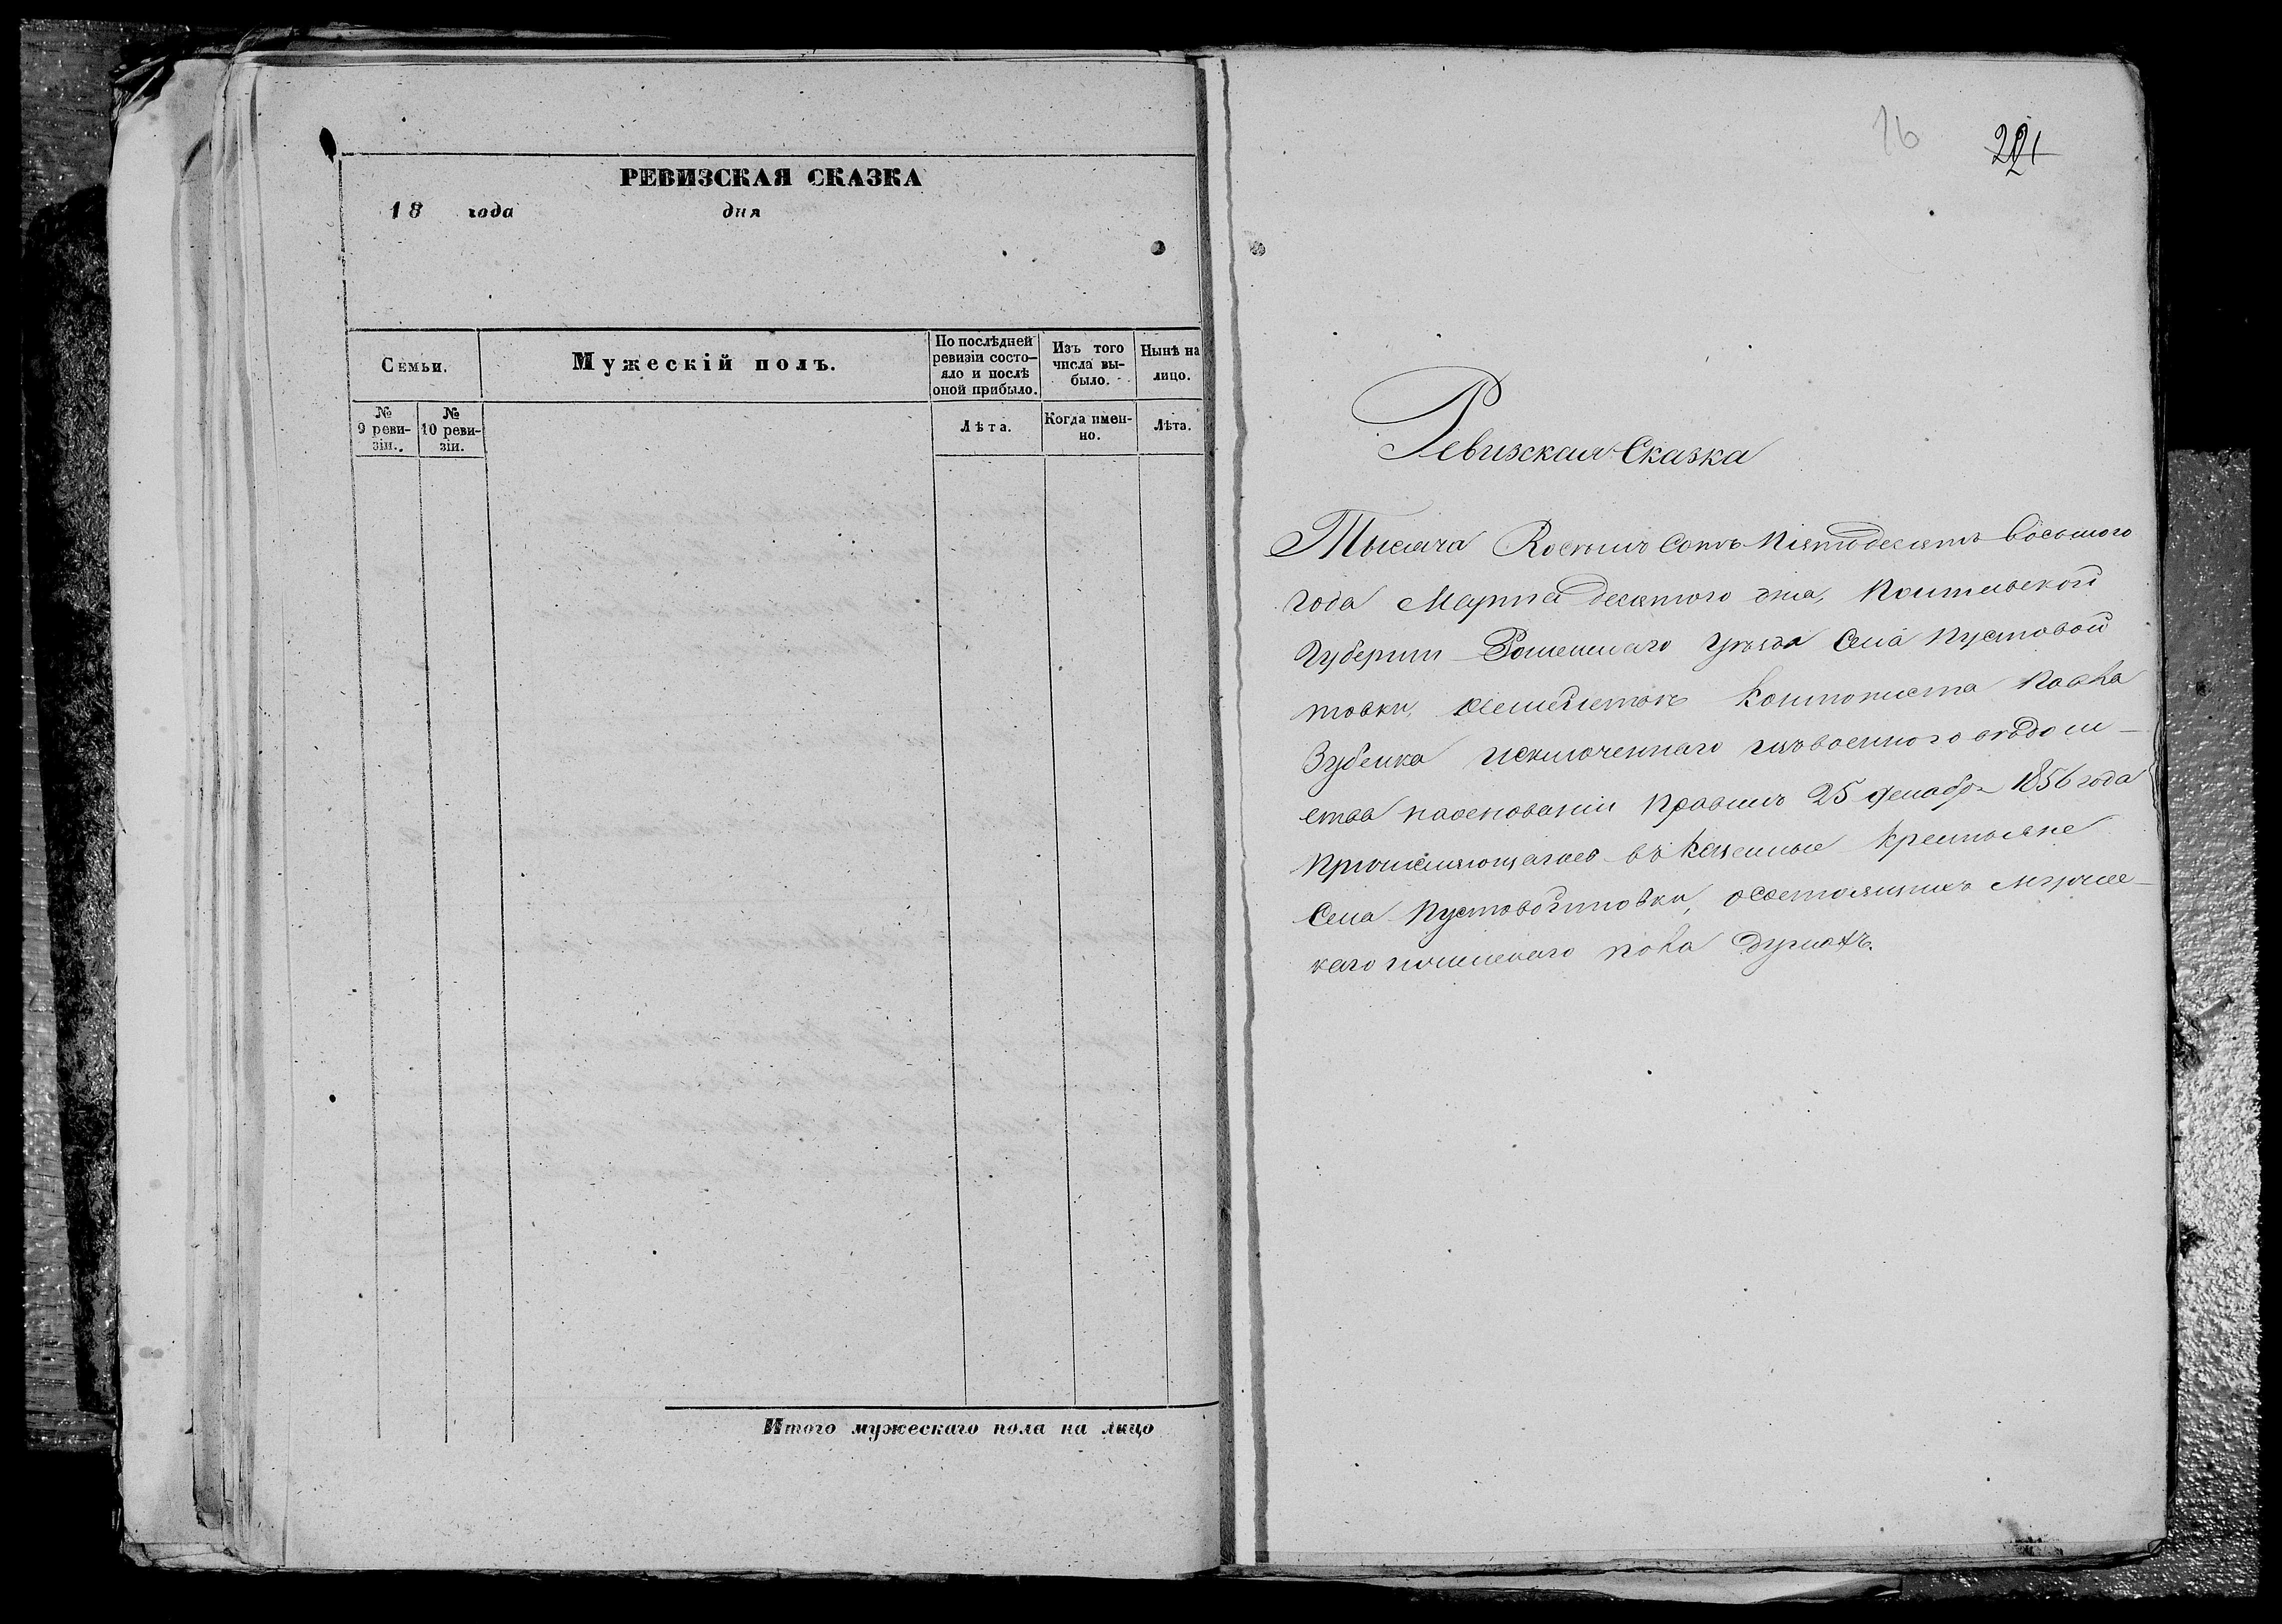 РЕВИЗСКАЯ СКАЗКА
18 года дня
Семьи.
Мужескій полъ.
По послѣдней ревизіи состо-яло и послѣ оной прибыло.
Изъ того числа вы-было.
Нынѣ на лицо.
№ 9 реви-зіи.
№ 10 реви-зіи.
Лѣта.
Когда имен-но.
Лѣта.
Итого мужескаго пола на лицо
16
Ревизская Сказка
Тысяча Восемъ Сотъ Пятьдесятъ Восьмого
года Марта десятого дня, Полтавской
Губерніи Роменскаго Уѣзда Села Пустовой
товки, Кантониста Павла
Зубенка исключеннаго изъ военного вѣдом-
ства наоснованіи правилъ 25 декабря 1856 года
Причисляющагося въ Казенные Крестьяне
Села Пустовойтовки, о состоящихъ мужес-
каго и женскаго пола душахъ.